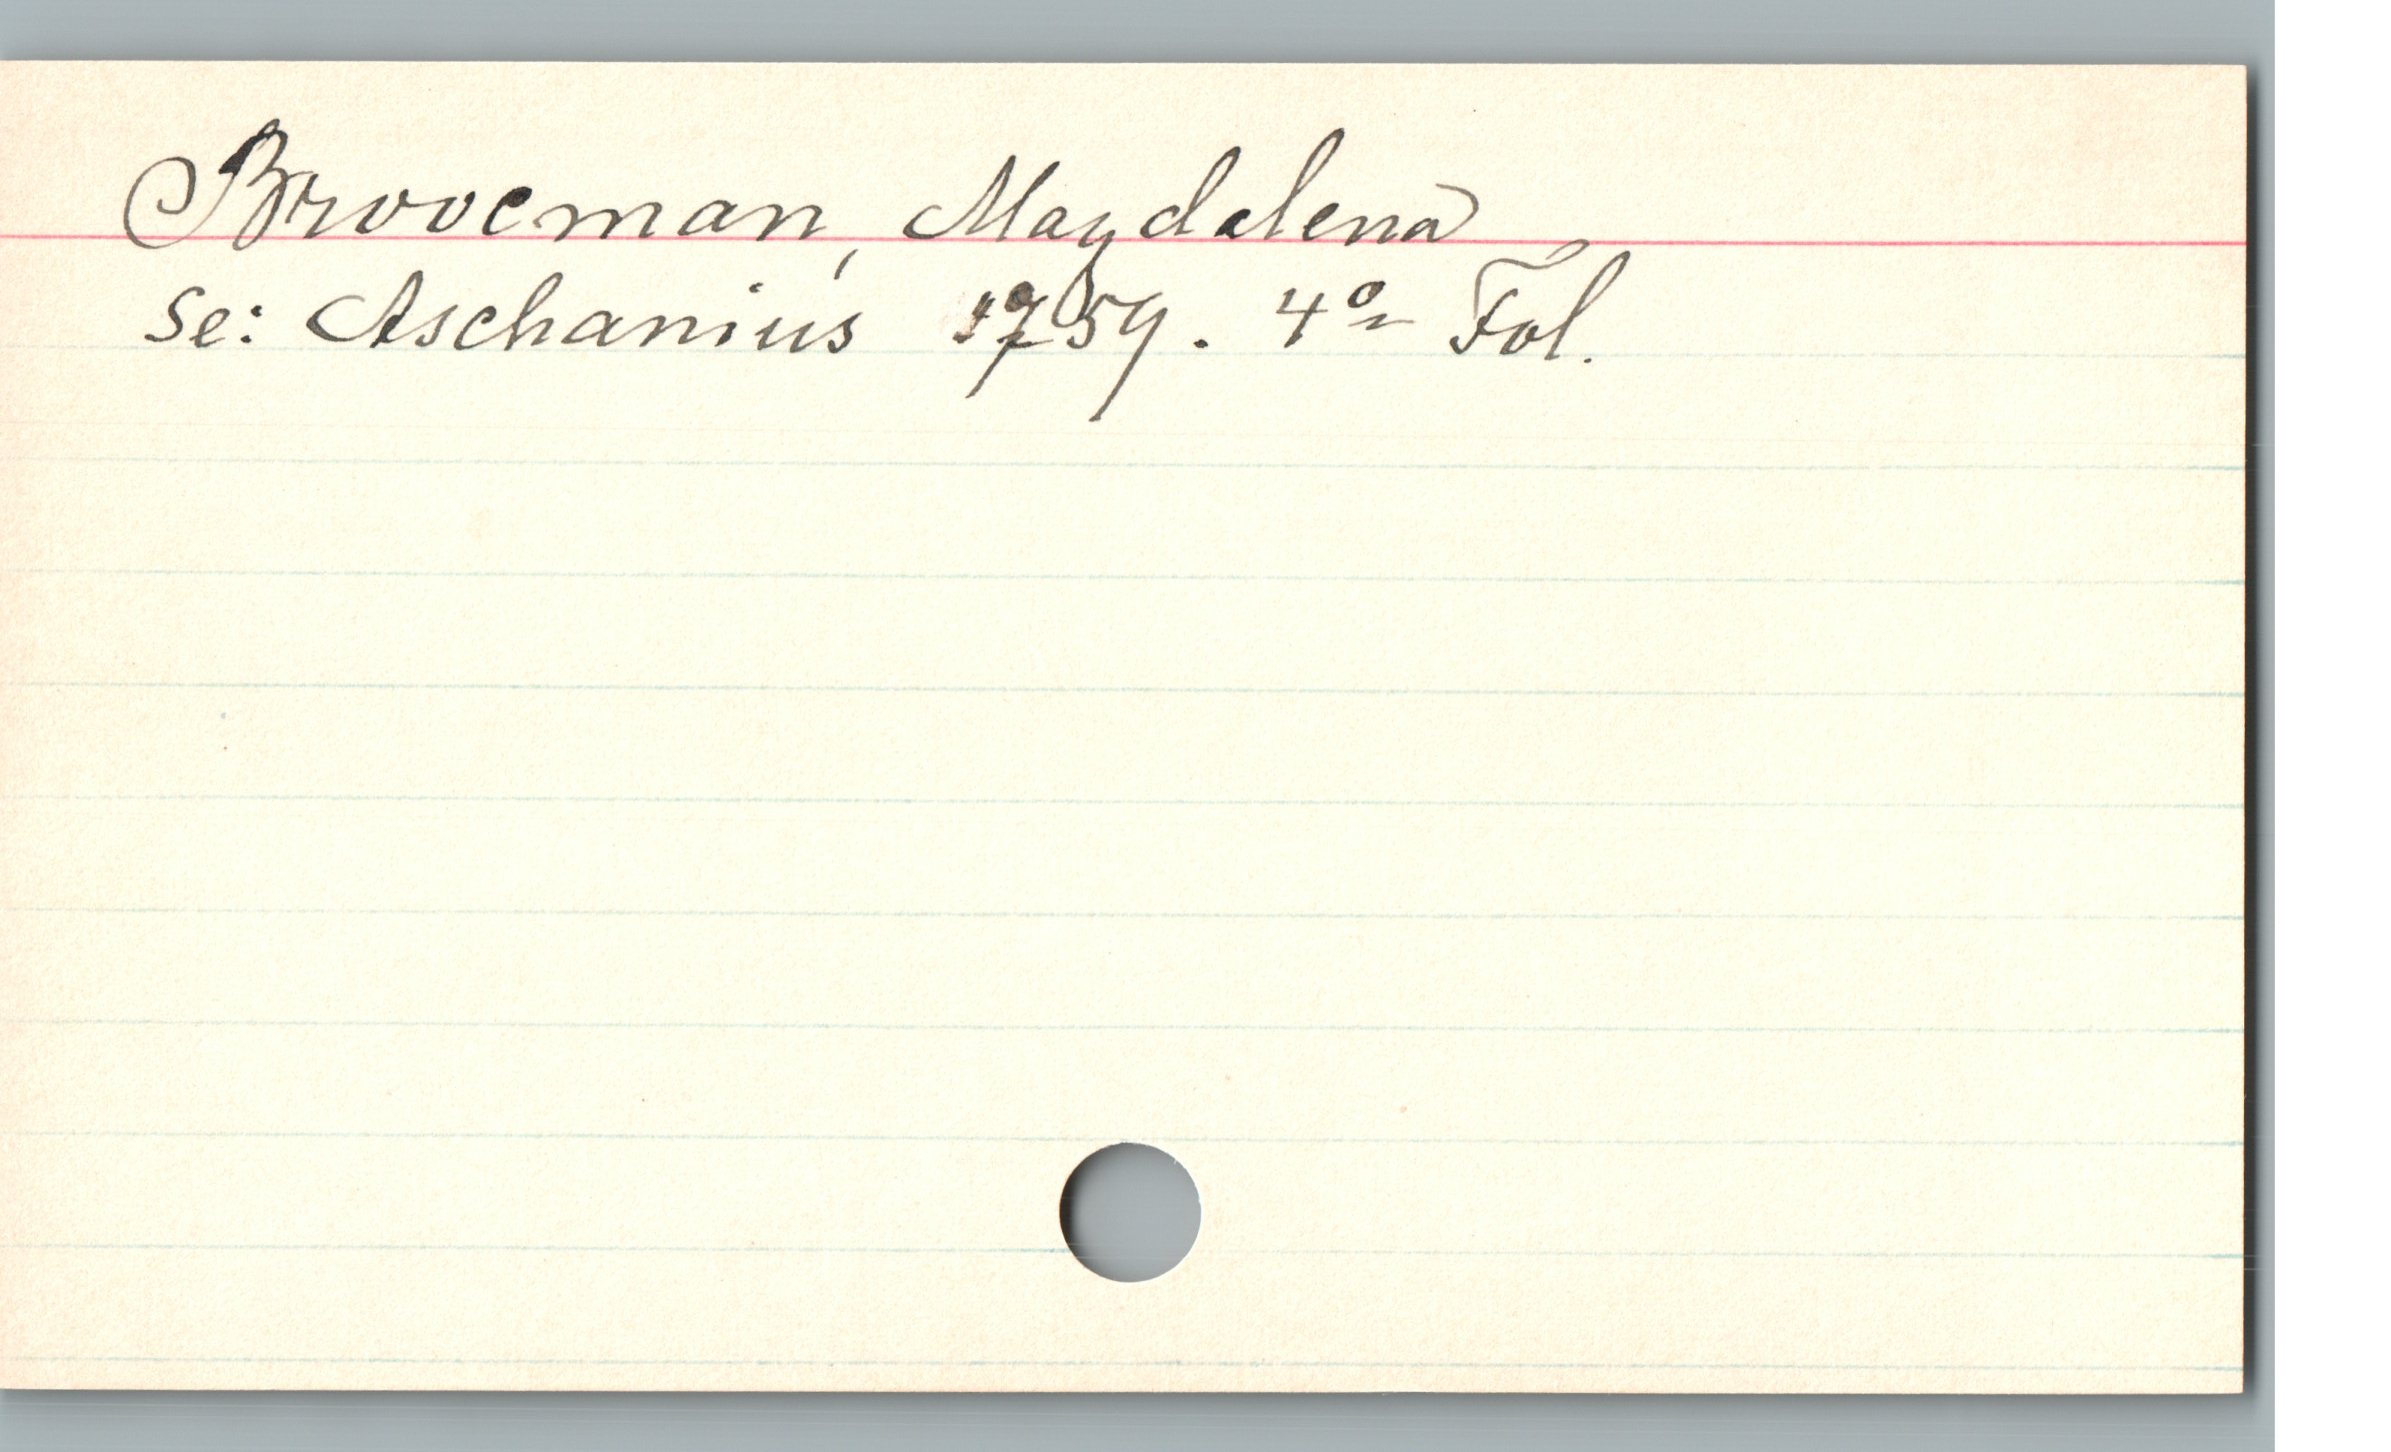 Broocman, Magdalena
se: Aschanius 1759. 4º Fol.